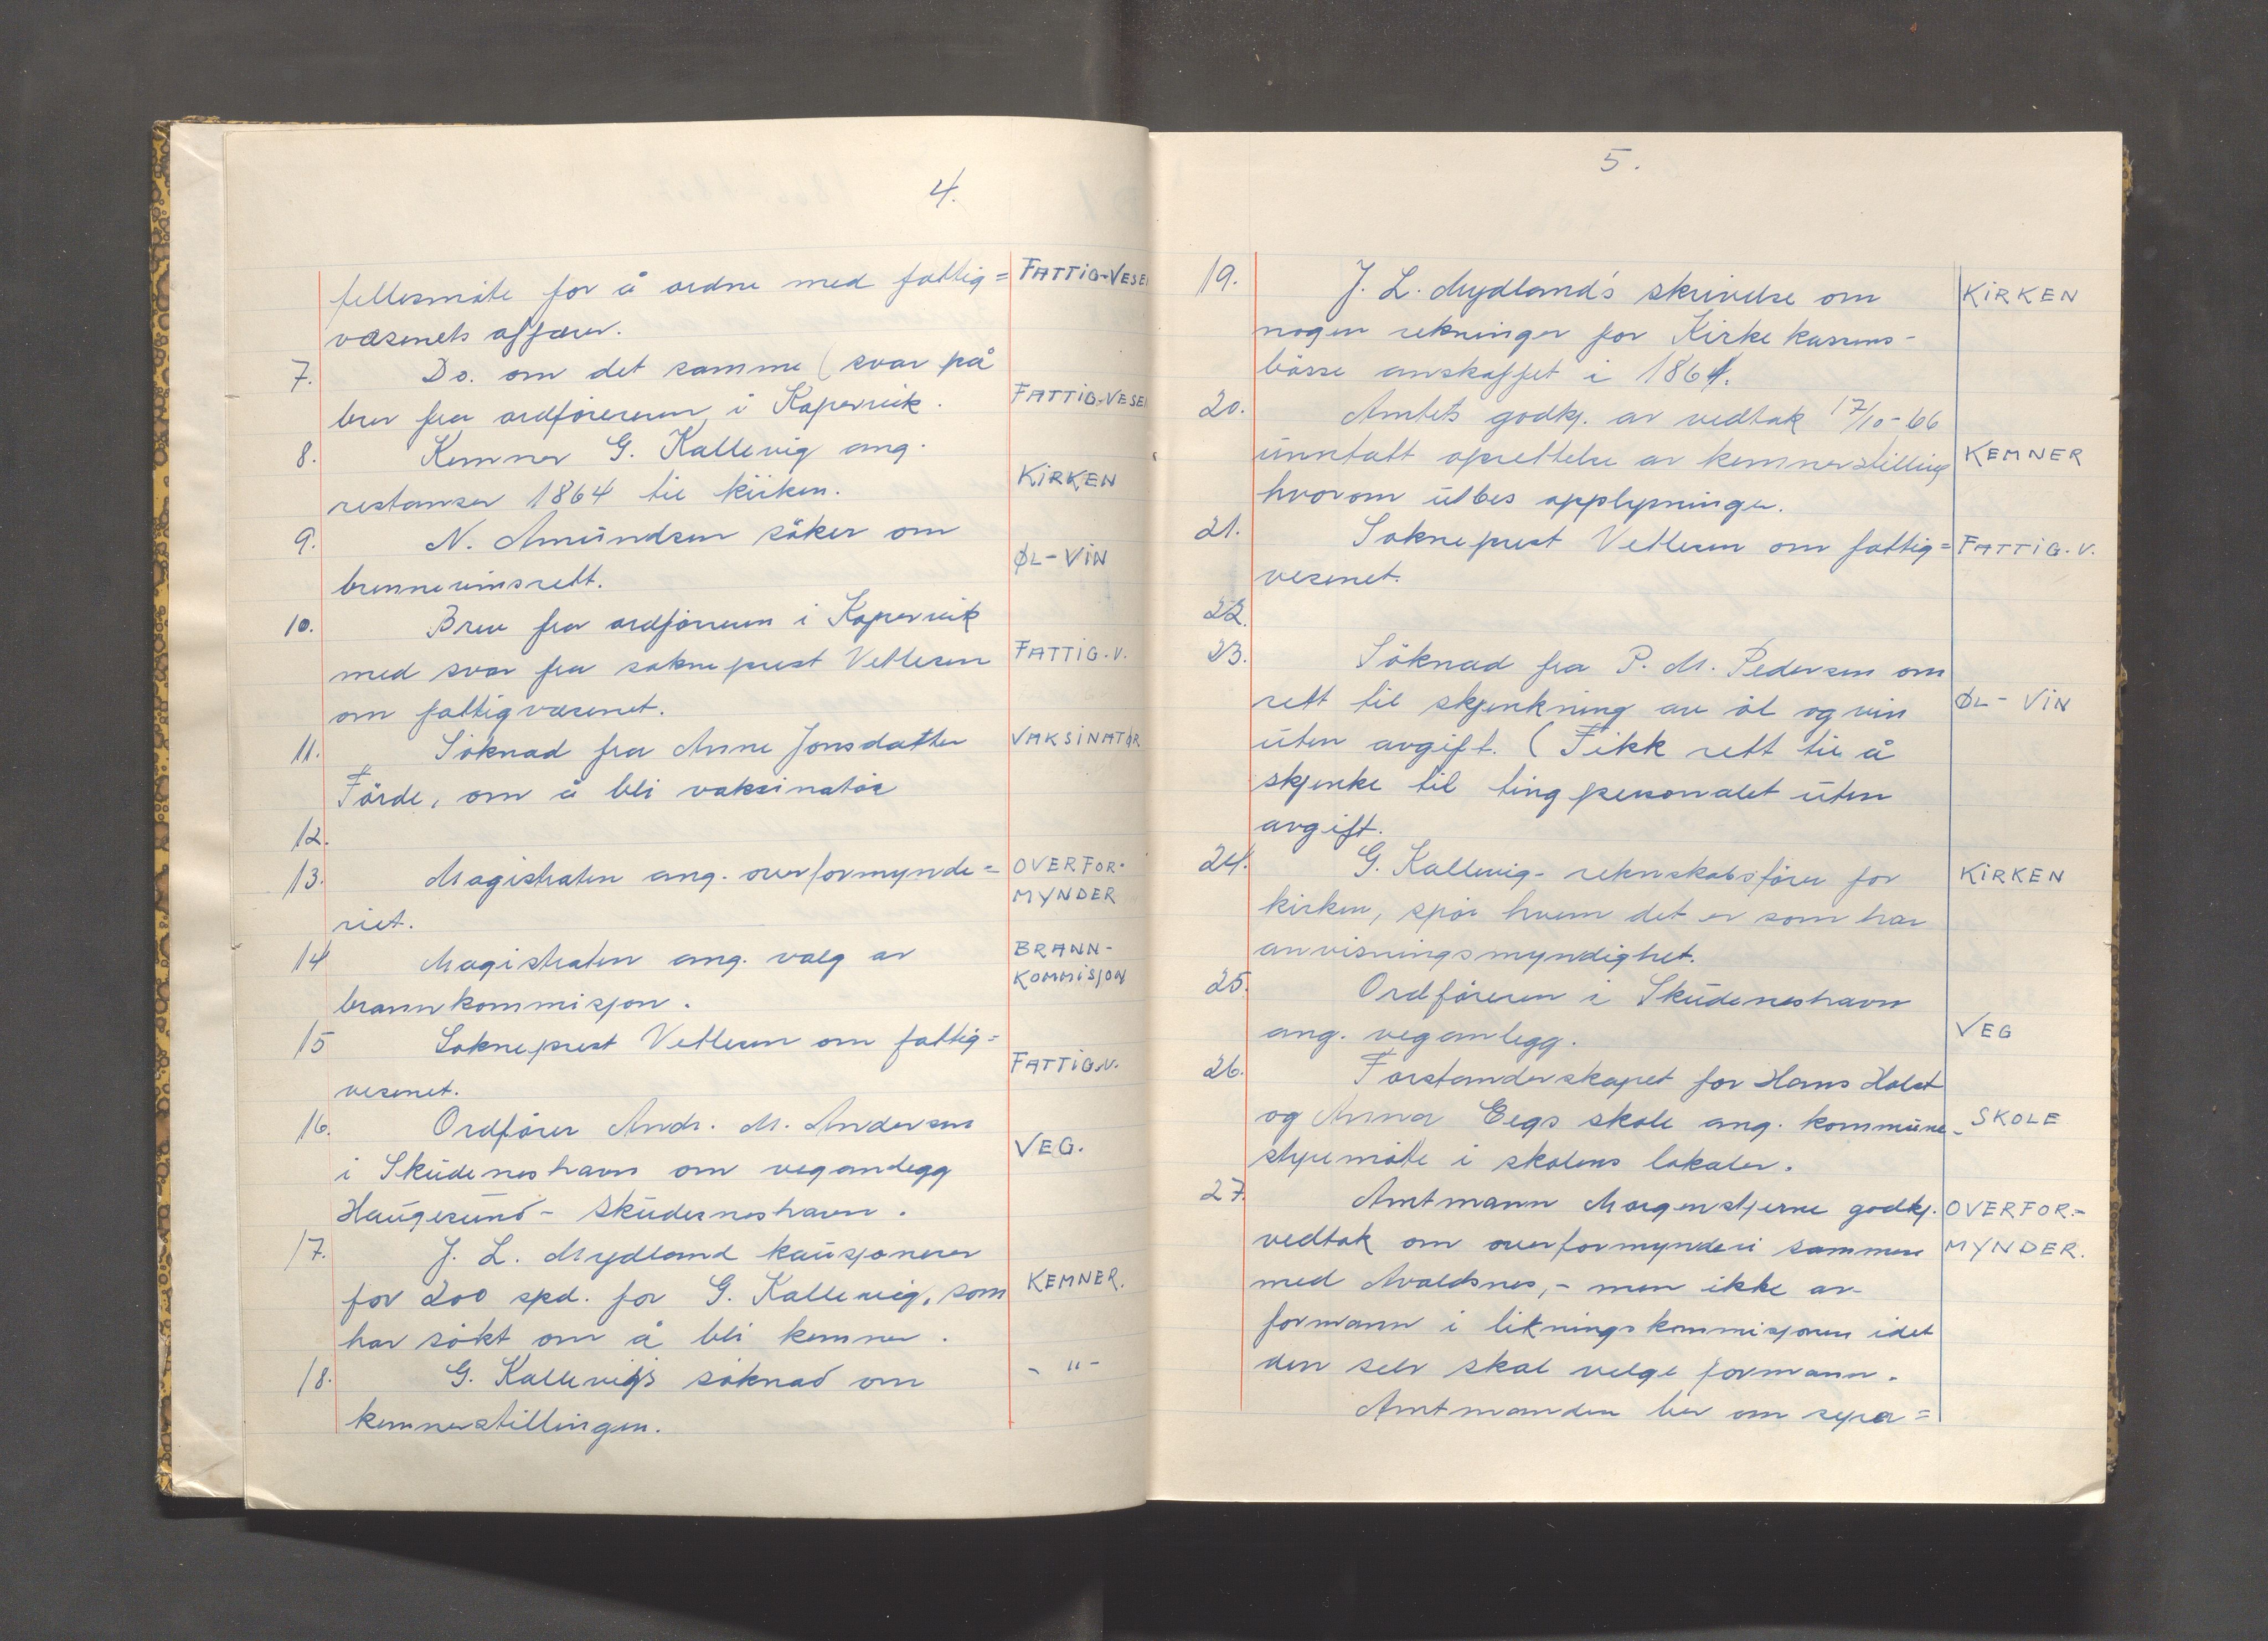 4.
fellesmöte for å ordne med fattig= FATTIG-VESE
væsenets affærer.
7. Do. om det samme (svar på
brev fra ordföreren i Kopervik. FATTIG-VESE
8. Kemner G. Kallevig ang.
restanser 1864 til kirken. KIRKEN
9. N. Amundsen söker om
brennevinsrett. ØL-VIN
10. Brev fra ordföreren i Kopervik
med svar fra sokneprest Vetlesen FATTIG.V.
om fattigvæsenet.
11. Söknad fra Anne Jonsdatter VAKSINATØR
Förde, om å bli vaksinatör
12.
13. Magistraten ang. overformynde= OVERFOR-
riet. MYNDER
14 Magistraten ang. valg av BRANN-
brannkommisjon. KOMMISJON
15 Sokneprest Vetlesen om fattig=
vesenet. FATTIG.V.
16. Ordförer Andr. M. Andersen
i Skudeneshavn om veganlegg VEG.
Haugesund- Skudeneshavn.
17. J. L. Mydland kausjonerer
for 200 spd. for G. Kallevig, som KEMNER.
har sökt om å bli kemner.
18. G. Kallevigs söknad om - " -
kemnerstillingen.
5.
19. J. L. Mydland's skrivelse om KIRKEN
nogen rekninger for Kirkekassens-
börse anskaffet i 1864.
20. Amtets godkj. av vedtak 17/10-66
unntatt oprettelse av kemnerstilling KEMNER
hvorom utbes opplysninger.
21. Sokneprest Vetlesen om fattig= FATTIG.V.
vesenet.
22.
23. Söknad fra P. M. Pedersen om
rett til skjenkning av öl og vin ØL- VIN
uten avgift. (Fikk rett til å
skjenke til tingpersonalet uten
avgift.
24. G. Kallevig- reknskabsförer for KIRKEN
kirken, spör hvem det er som har
anvisningsmyndighet.
25. Ordföreren i Skudeneshavn
ang. veganlegg. VEG
26. Forstanderskapet for Hans Holst
og Anna Eegs skole ang. kommune- SKOLE
styremöte i skolens lokaler.
27. Amtmann Morgenstjerne godkj. OVERFOR.-
vedtak om overformynderi sammen MYNDER.
med Avaldsnes,- men ikke av
formann i likningskommisjonen idet
den selv skal velge formann.
Amtmanden ber om sepa=